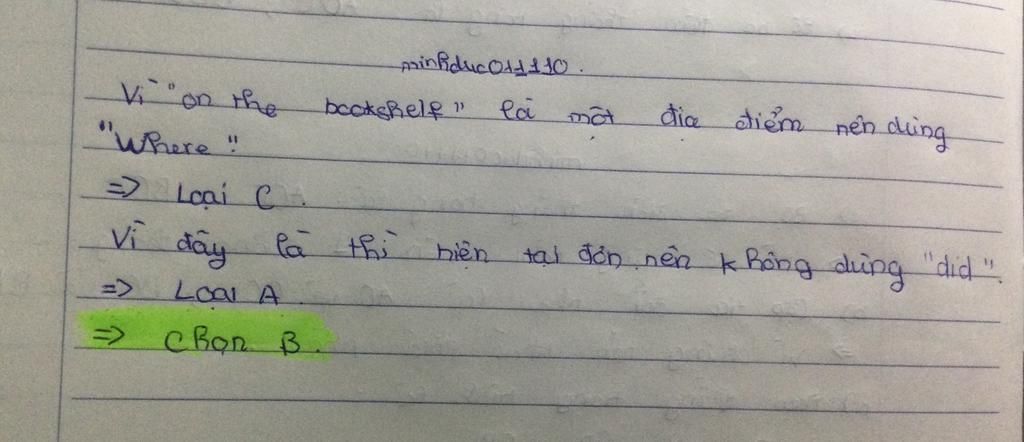 minhduc011110.
Vì "on the bookshelf" là một địa điểm nên dùng
"Where".
=> Loại C.
Vì đây là thì hiện tại đơn nên không dùng "did".
=> Loại A.
=> Chọn B.